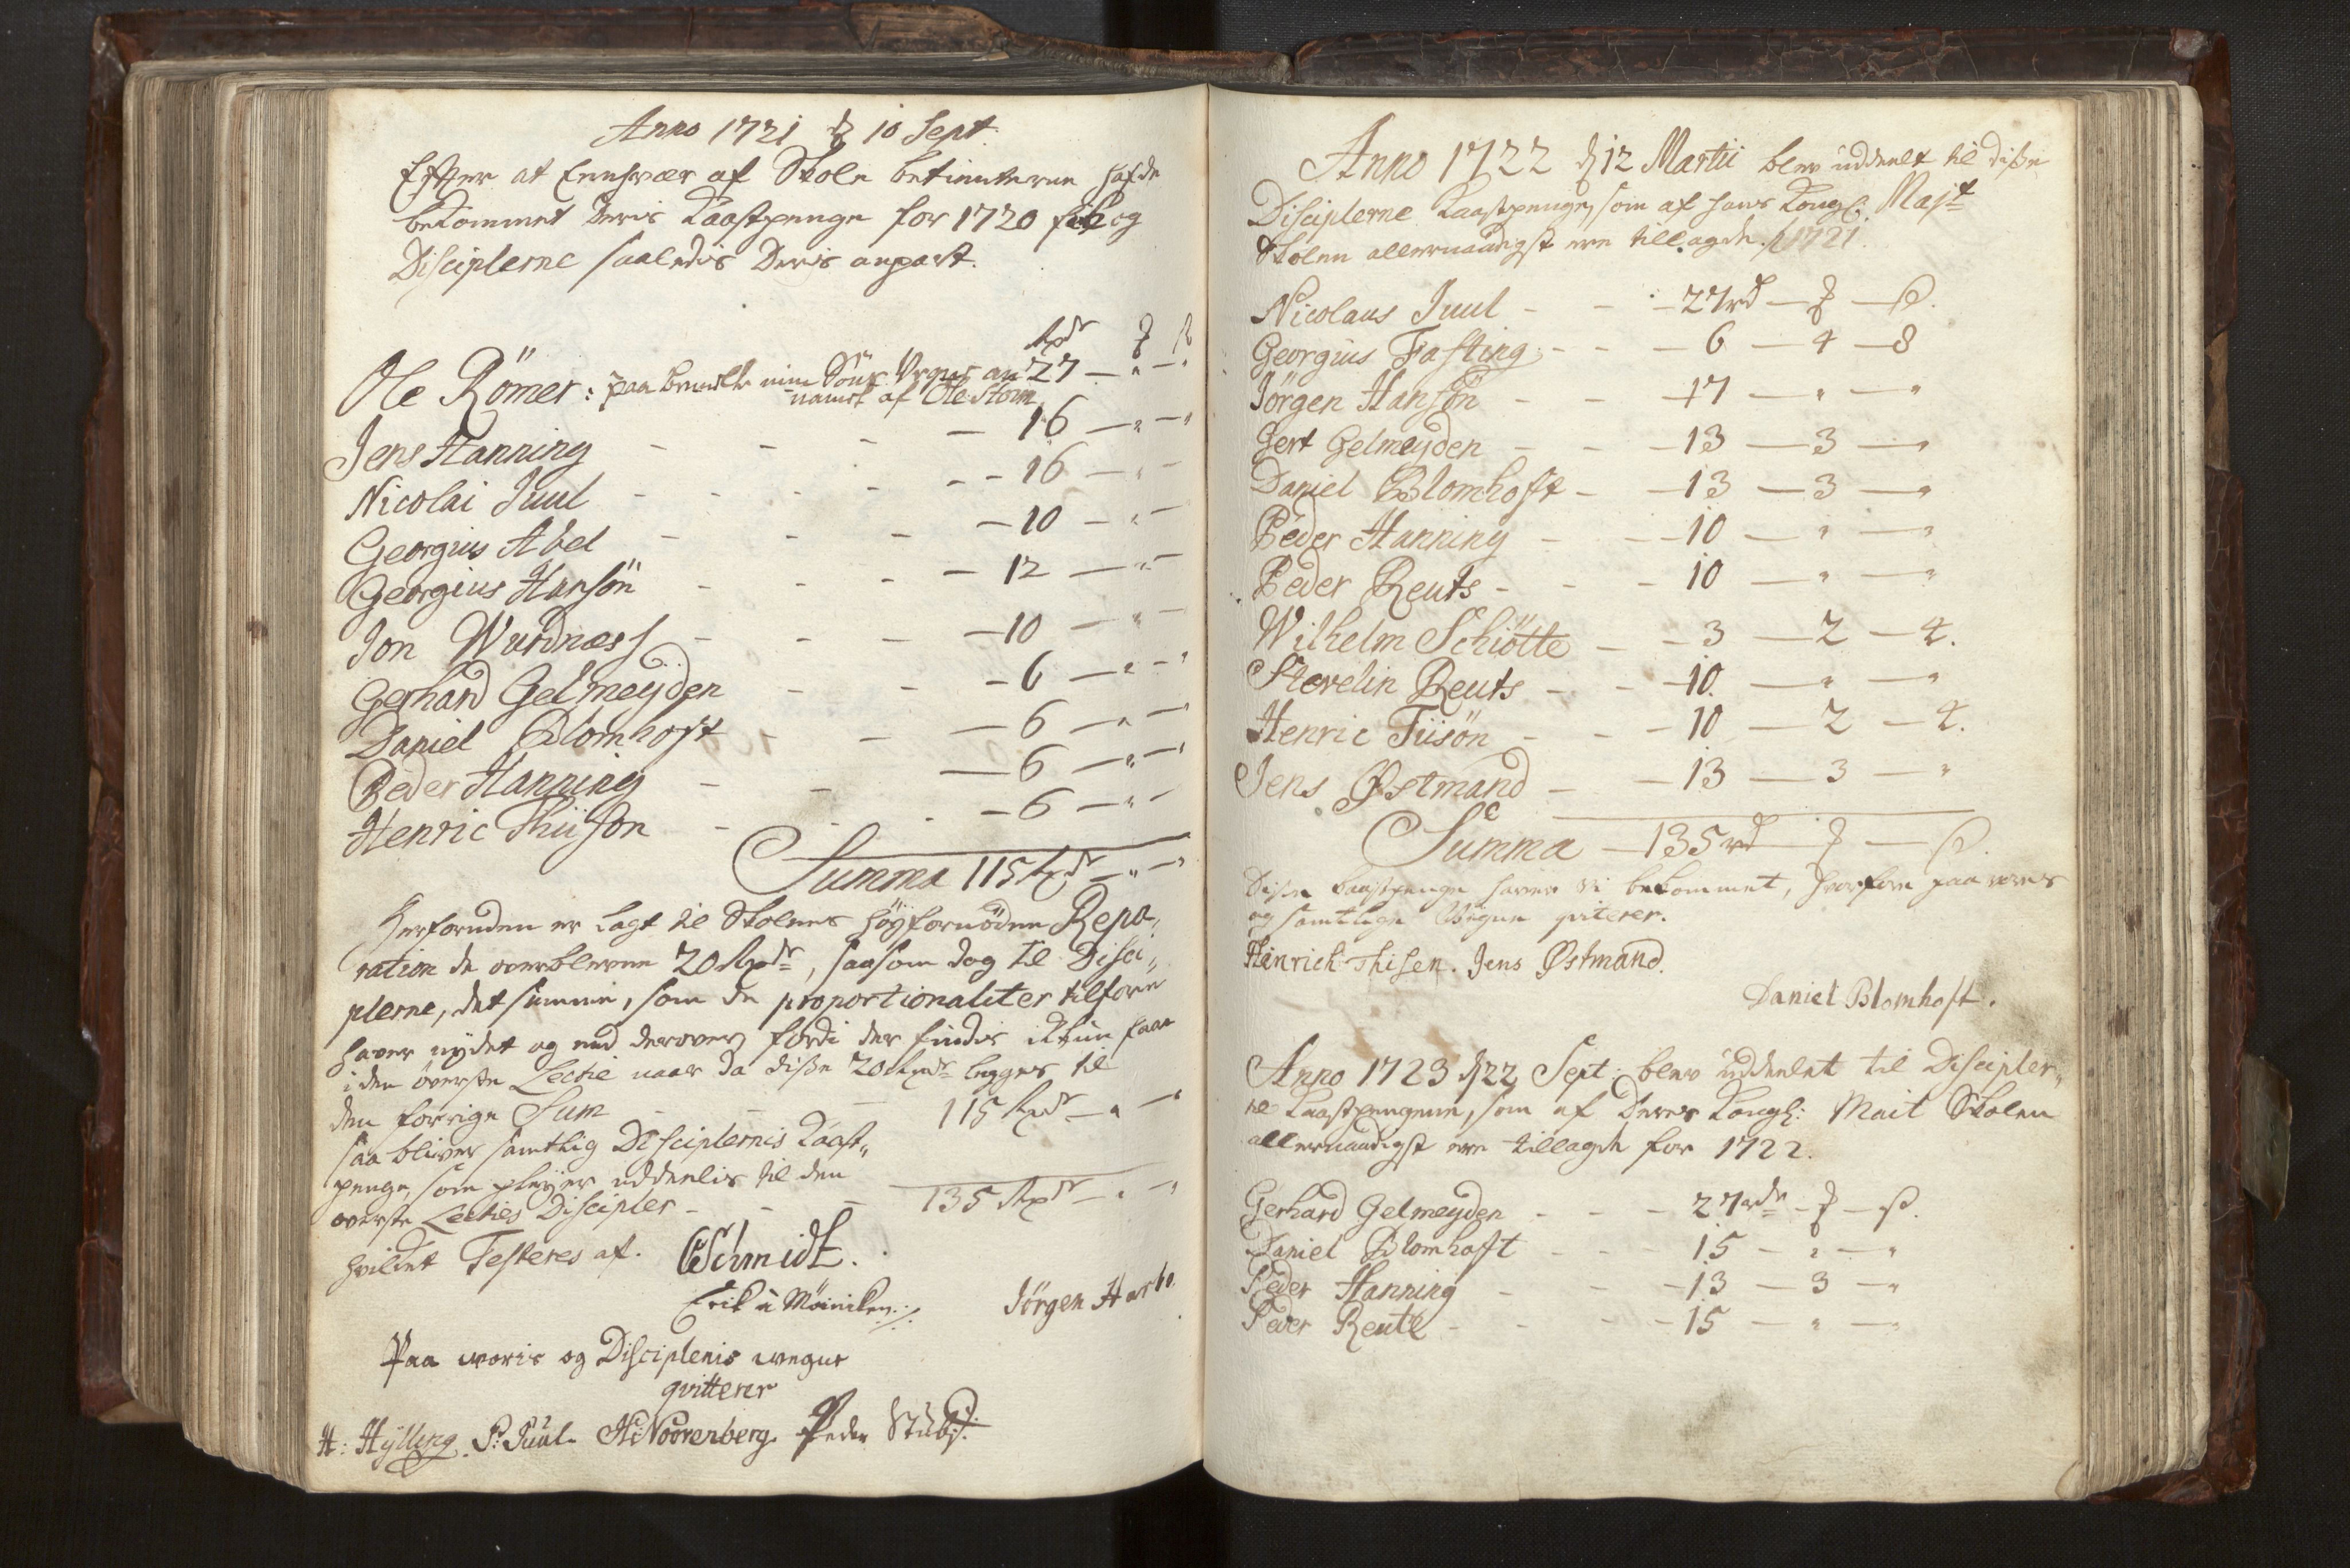 Anno 1721 d 10 Sept.
Efter at Eenhvær af Skole betienterne hafde
bekommet deris Kaastpenge for 1720 fik og
Disciplerne saaledis Deris anpart.
Rdr
Ole Römer: paa min Söns Vegne an 27 — " — "
namt af Ole Storm
Jens Hanning — 16 — " — "
Nicolai Juul — 16 — " —
Georgius Abel — 10 — " —
Georgius Hansön — 12 — " —
Jon Wurdnæss — 10 — " —
Gerhard Gelmeÿden — 6 — " — "
Daniel Blomhoft — 6 — " — "
Peder Hanning — 6 — " — "
Henric Thiison — 6 — " —
Summa 115 Rxdr — " — "
Herforuden er lagt til Skolens höÿfornödne Repa-
ration de overblevne 20 Rxdr, saasom dog til Disci-
plerne, det summa, som de proportionaliter tilforn
haver nÿdet og end derover, fordi der findis ikkun faae
i den överste Lectie naar da disse 20 Rxdr legges til
den forrige Sum — 115 Rxdr — " — "
saa bliver samtlig Disciplernis Kaast-
penge, som pleÿer uddeelis til den
överste Lecties Discipler — 135 Rxdr — " — "
hvilket Testeres af. Schmidt.
Erik a Möiniken
Jörgen Harbo
Paa woris og Disciplenis wegne
qvitterer
H: Hÿlling. P: Juul. H: Noorenberg. Peder Stub
Anno 1722 d 12 Martii blev uddeelt til disse
Disciplerne Kaastpenge, som af hans Kongl. Majt
Skolen allernaadigst ere tillagde. p 1721
Nicolaus Juul — 27 rd — ʒ — ß.
Georgius Fasting — 6 — 4 — 8
Jörgen Hansön — 17 — " — "
Gert Gelmeyden — 13 — 3 — "
Daniel Blomhoft — 13 — 3 — "
Peder Hanning — 10 — " — "
Peder Reuts — 10 — " — "
Wilhelm Schiötte — 3 — 2 — 4.
Stevelin Reuts — 10 — " — "
Henric Tiisön — 10 — 2 — 4.
Jens Østmand — 13 — 3 — "
Summa — 135 rd — ʒ — ß.
Disse Kaastpenge haver vi bekommet, hvorfore paa vores
og samtlige Vegne qviterer.
Hinrich Thisen. Jens Østmand.
Daniel Blomhoft.
Anno 1723 d 22 Sept: blev uddeelet til Discipler-
ne Kaastpengene, som af Deres Kongl: Mait Skolen
allernaadigst ere tillagde for 1722.
Gerhard Gelmeyden — 27 rdr — ʒ — ß.
Daniel Blomhoft — 15 — " — "
Peder Hanning — 13 — 3 — "
Peder Reutz — 15 — " — "